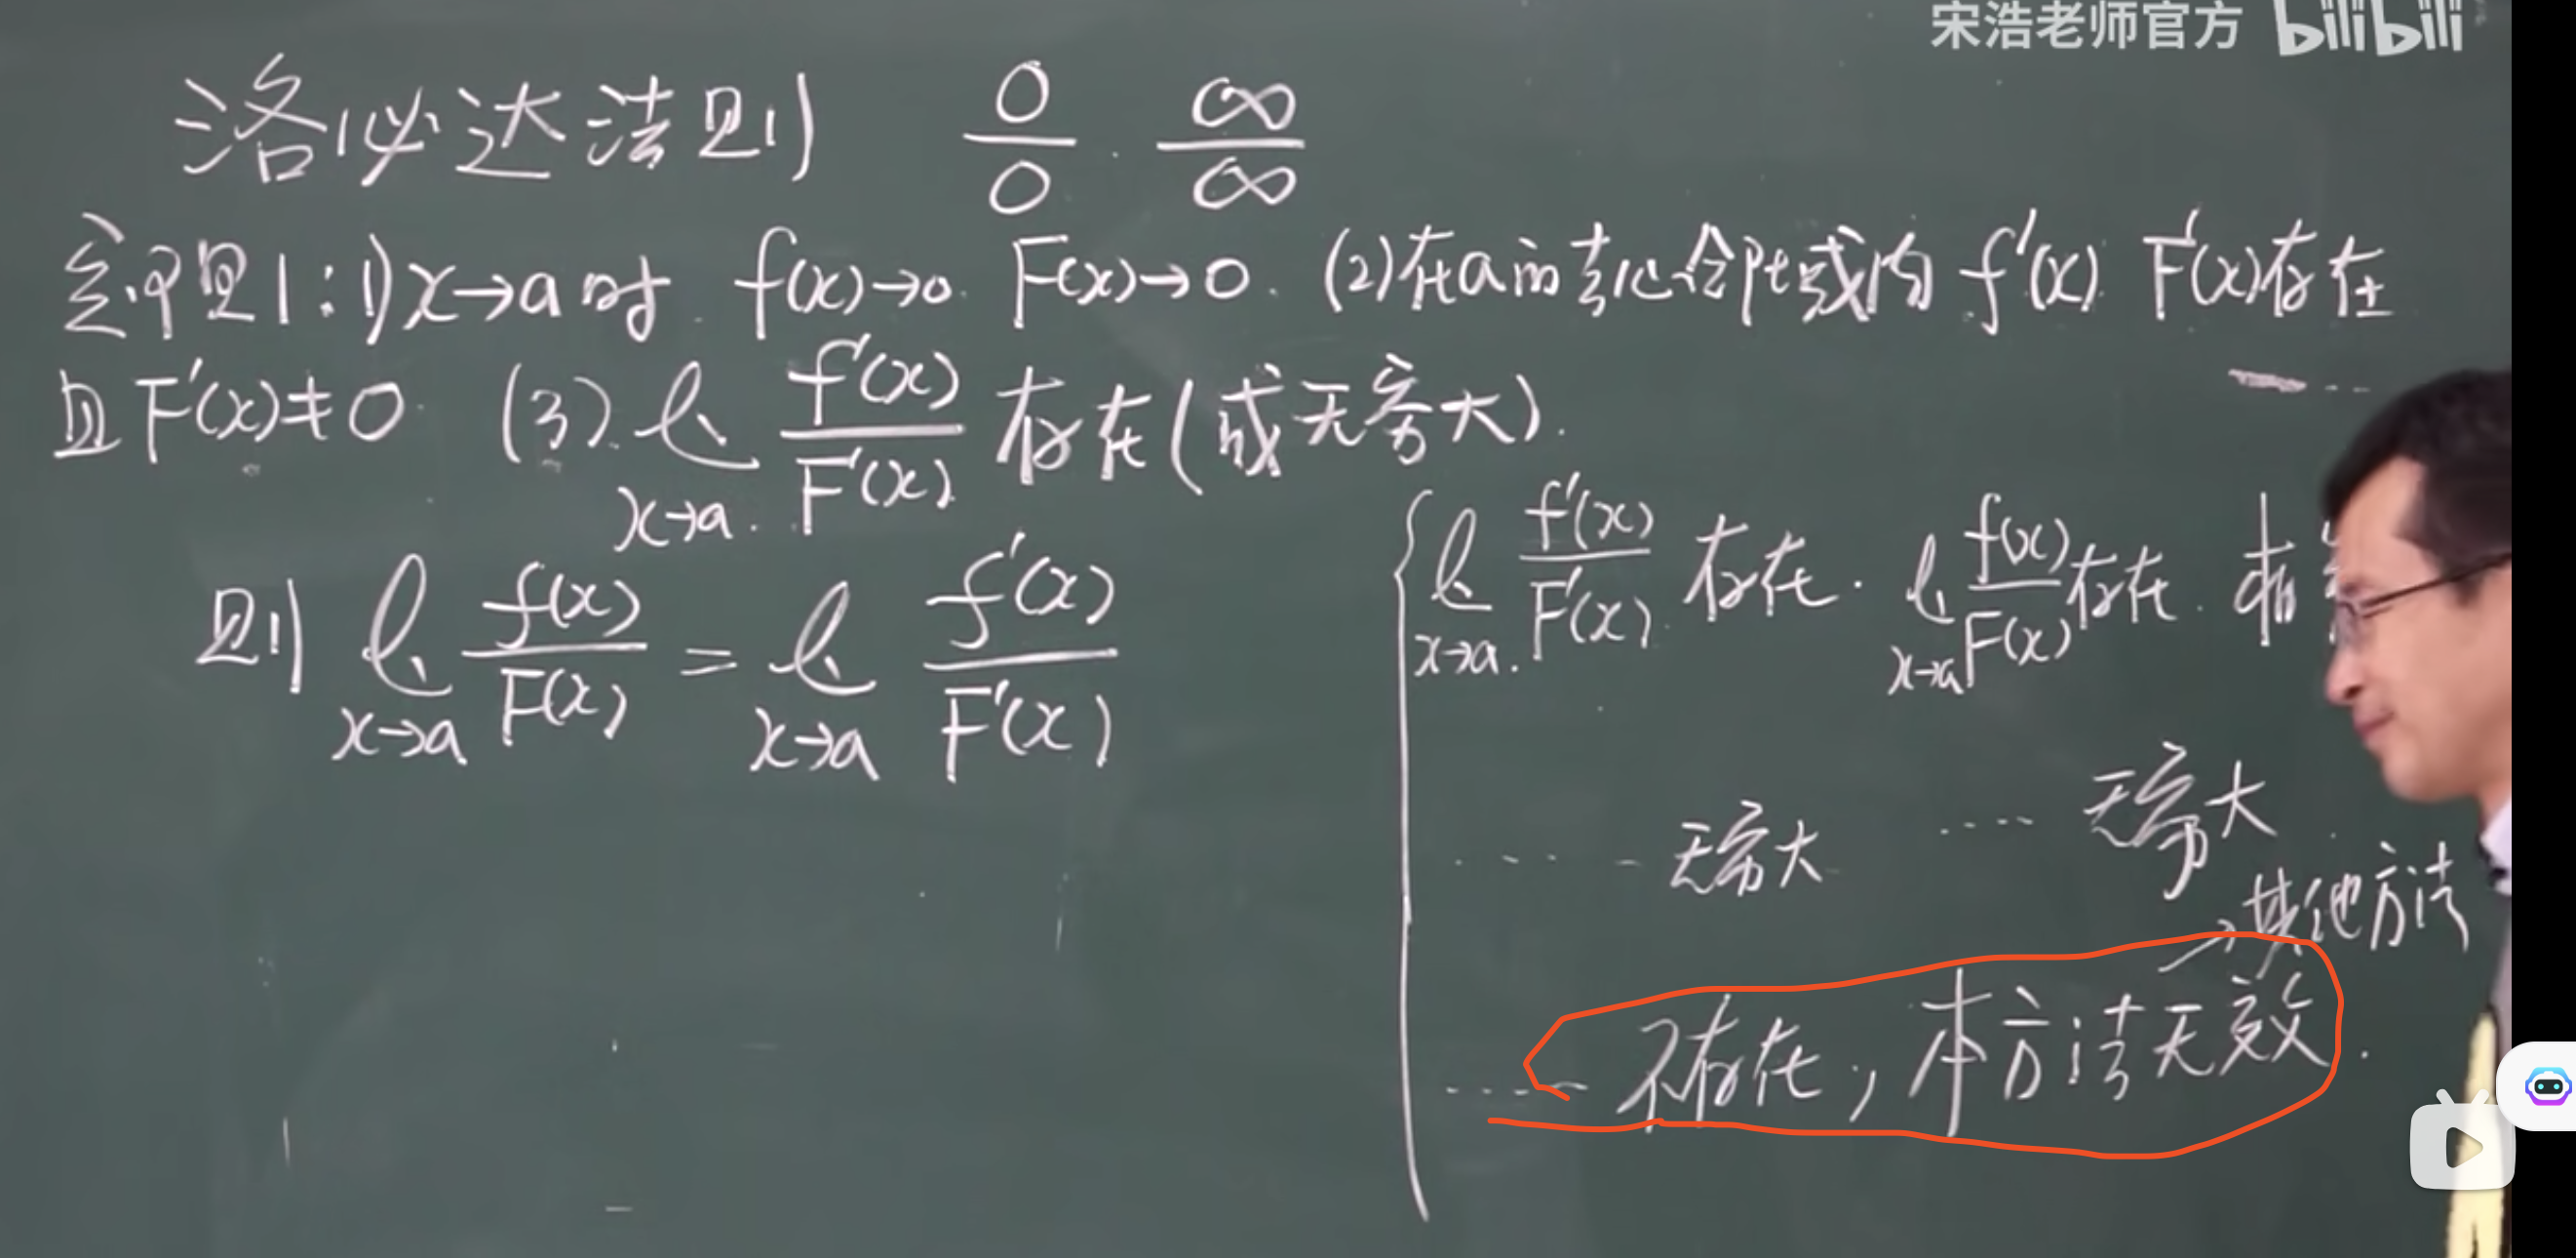 宋浩老师官方 bilibili
洛必达法则 0/0 . ∞/∞
定理1:1) x→a时 f(x)→0. F(x)→0. (2)在a的去心令阝域内 f'(x). F'(x)存在
且F'(x)≠0. (3). l. x→a. f'(x)/F'(x) 存在(或无穷大).
则 l. x→a f(x)/F(x) = l. x→a f'(x)/F'(x)
{ l. x→a. f'(x)/F'(x). 存在. l. x→a f(x)/F(x) 存在. 相
.... 无穷大 .... 无穷大.
→其他方法
.... 不存在, 本方法无效.